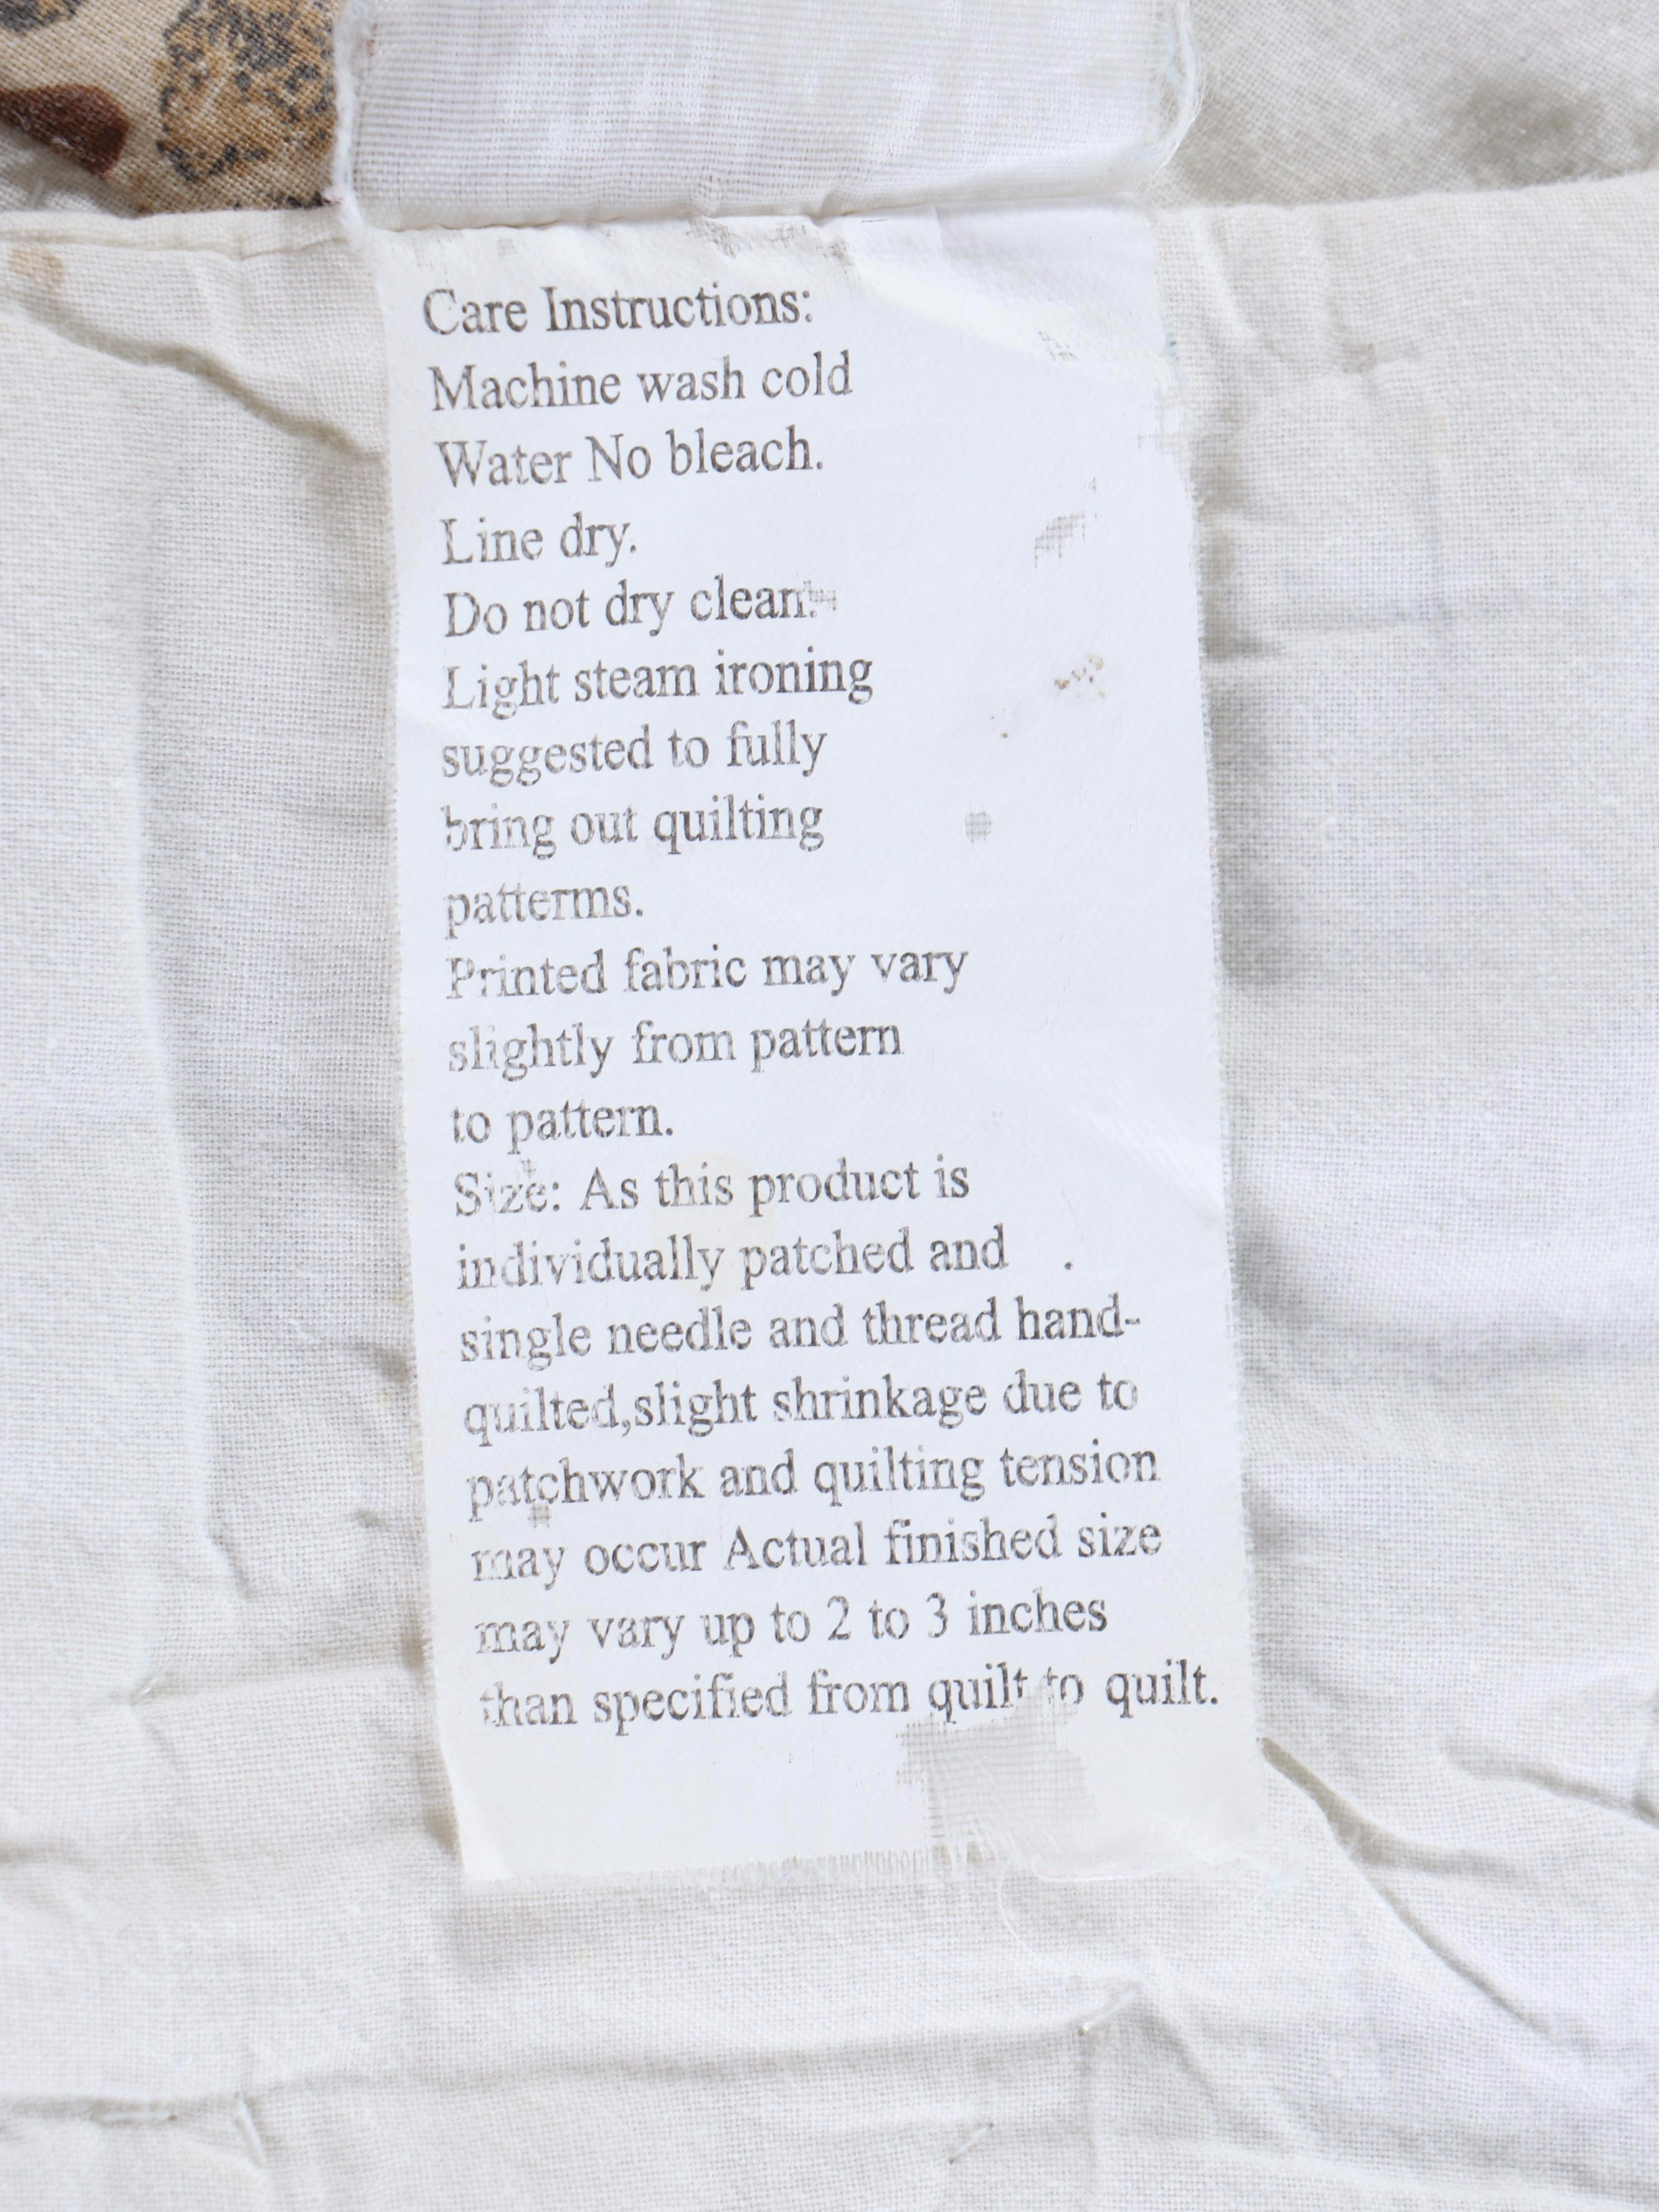 Care Instructions:
Machine wash cold
Water No bleach.
Line dry.
Do not dry clean.
Light steam ironing
suggested to fully
bring out quilting
patterms.
Printed fabric may vary
slightly from pattern
to pattern.
Size: As this product is
individually patched and .
single needle and thread hand-
quilted,slight shrinkage due to
patchwork and quilting tension
may occur Actual finished size
may vary up to 2 to 3 inches
than specified from quilt to quilt.